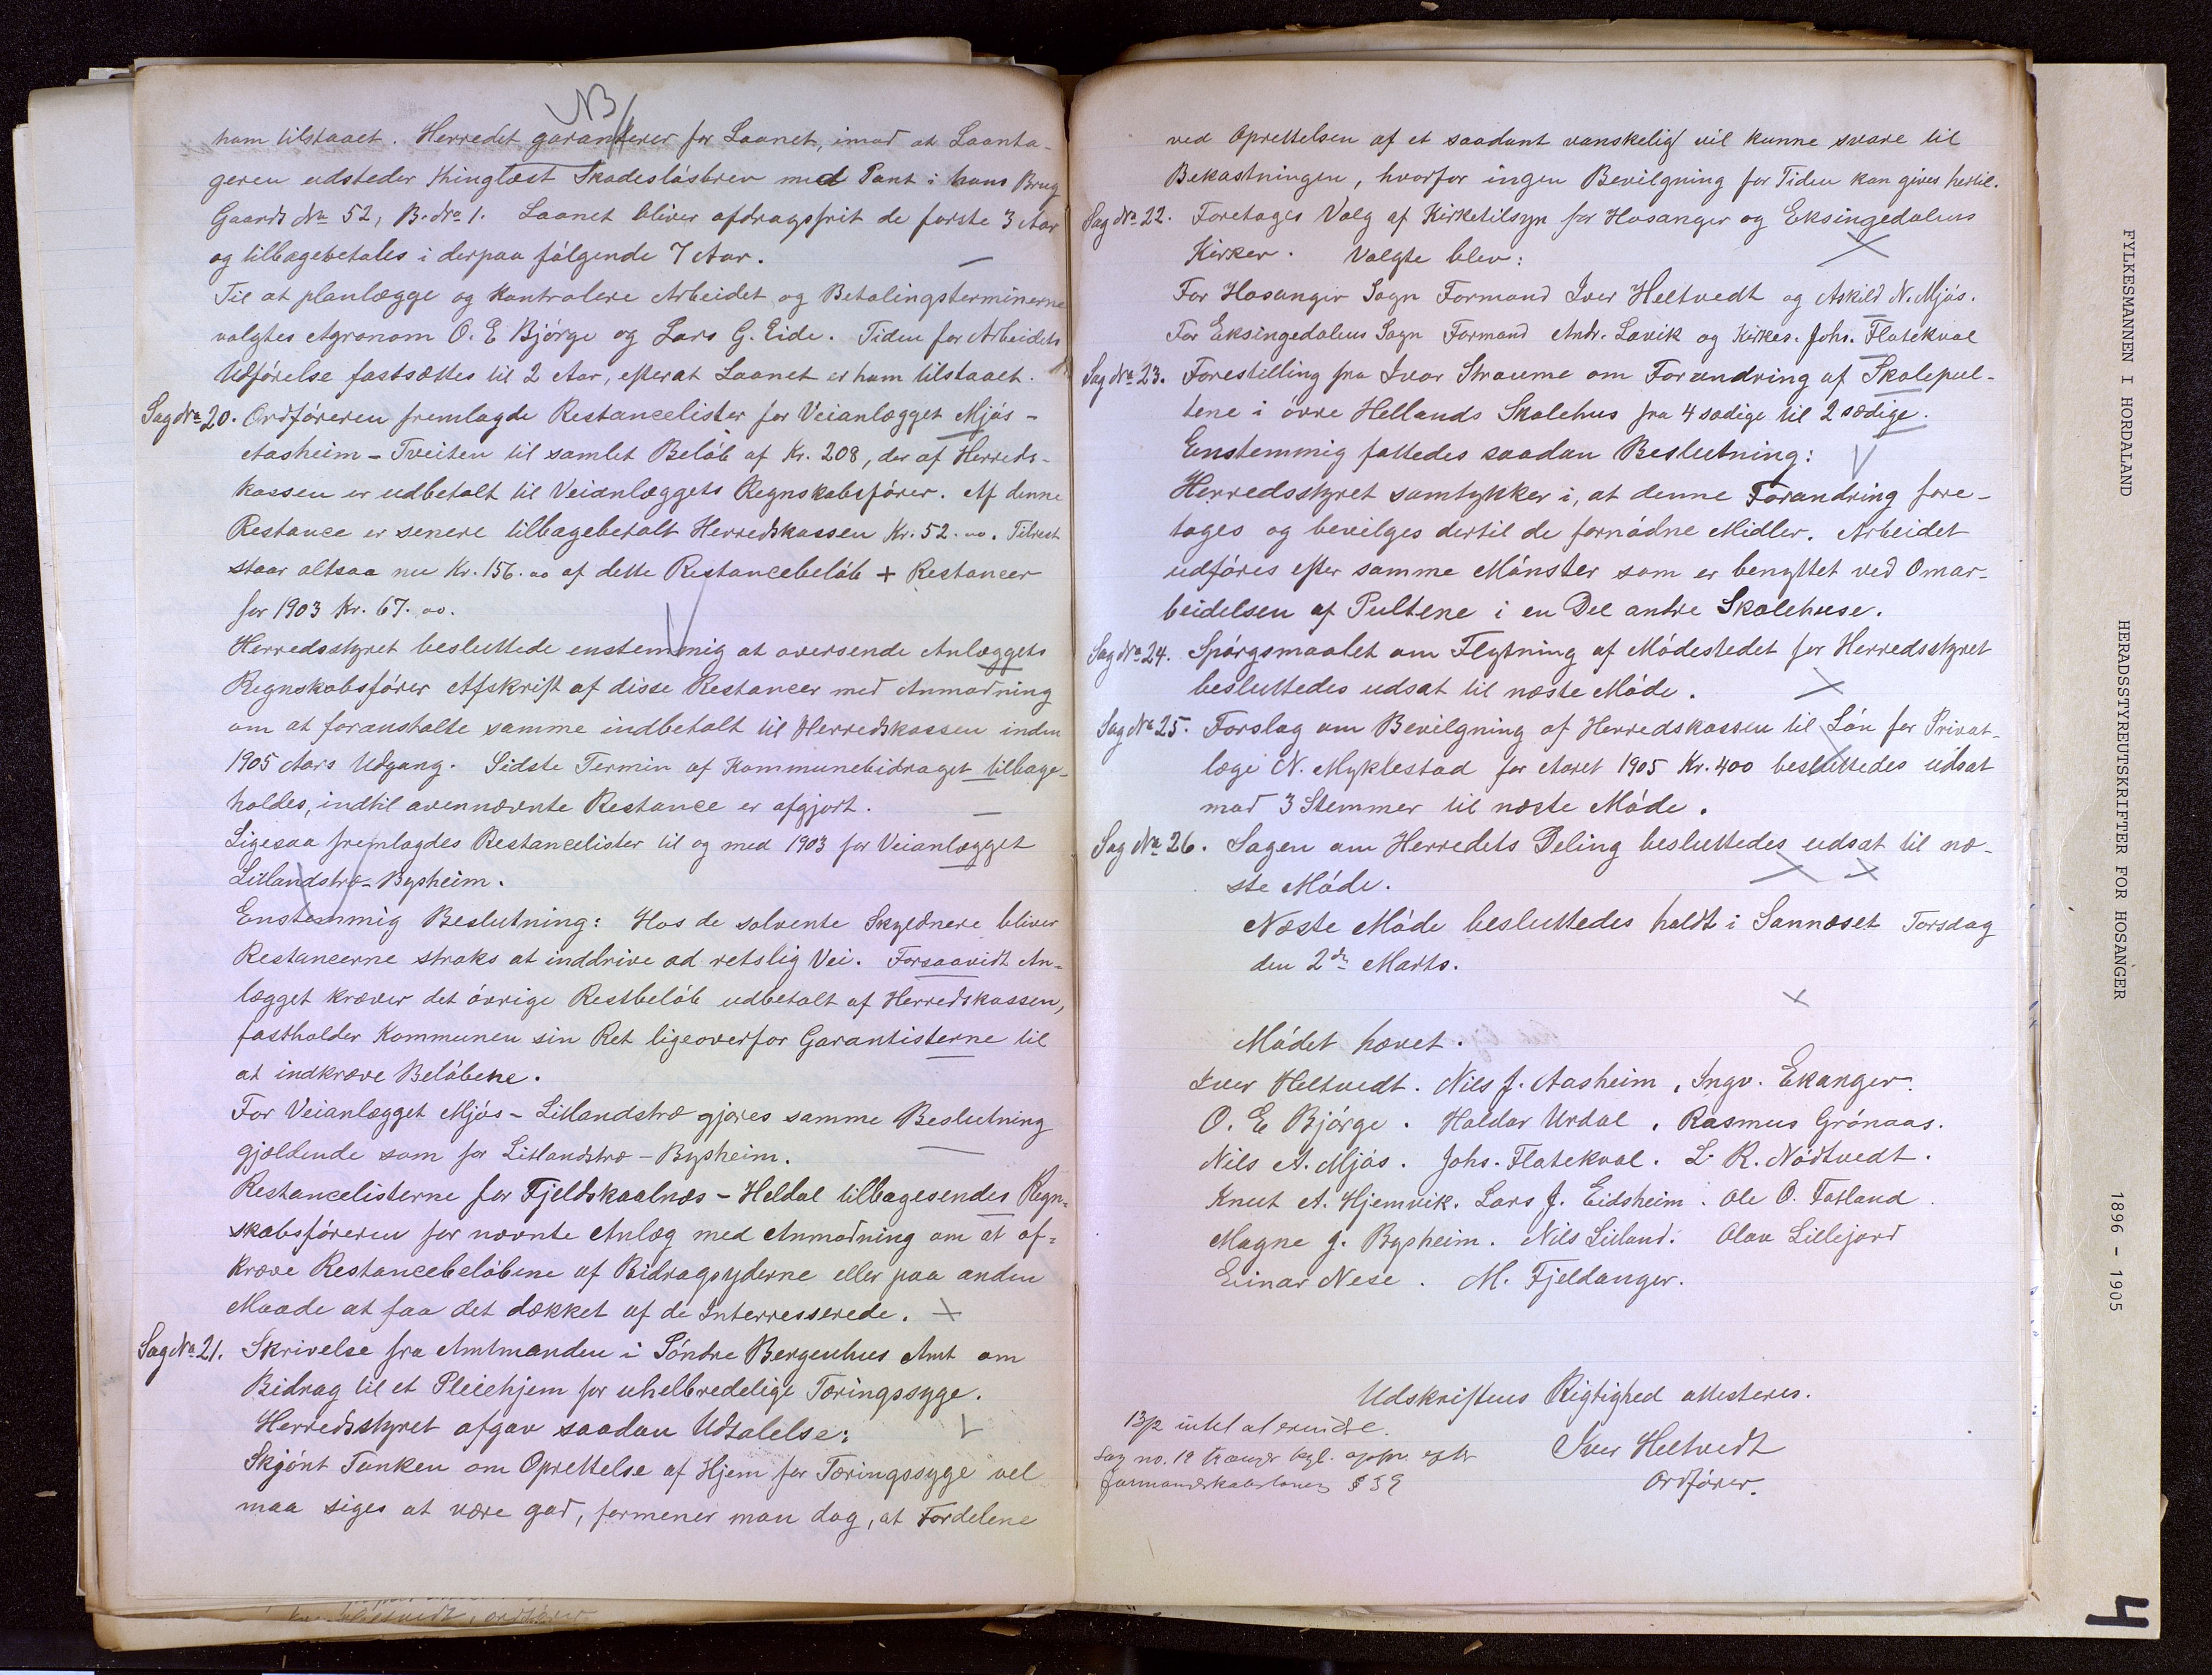 NB
ham tilstaaet. Herredet garanterer for Laanet, imod at Laanta-
geren udsteder thinglæst Skadesløsbrev med Pant i hans Brug
Gaards No 52, B. No 1. Laanet bliver afdragsfrit de første 3 Aar
og tilbagebetales i derpaa følgende 7 Aar. –
Til at planlægge og kontrolere Arbeidet og Betalingsterminerne
valgtes Agronom O. E Bjørge og Lars G. Eide. Tiden for Arbeidets
Udførelse fastsættes til 2 Aar, efterat Laanet er ham tilstaaet.
Sag No 20. Ordføreren fremlagde Restancelister for Veianlægget Mjøs -
Aasheim - Tveiten til samlet Beløb af Kr. 208, der af Herreds-
kassen er udbetalt til Veianlæggets Regnskabsfører. Af denne
Restance er senere tilbagebetalt Herredskassen Kr. 52.00. Tilrest
staar altsaa nu Kr. 156.00 af dette Restancebeløb + Restancer
for 1903 Kr. 67.00.
Herredsstyret besluttede enstemmig at oversende Anlæggets
Regnskabsfører Afskrift af disse Restancer med Anmodning
om at foranstalte samme indbetalt til Herredskassen inden
1905 Aars Udgang. Sidste Termin af Kommunebidraget tilbage-
holdes, indtil ovennævnte Restance er afgjort. –
Ligesaa fremlagdes Restancelister til og med 1903 for Veianlægget
Litlandstræ - Bysheim.
Enstemmig Beslutning: Hos de solvente Skyldnere bliver
Restancerne straks at inddrive ad retslig Vei. Forsaavidt An-
lægget kræver det øvrige Restbeløb udbetalt af Herredskassen,
fastholder Kommunen sin Ret ligeoverfor Garantisterne til
at indkræve Beløbene.
For Veianlægget Mjøs - Litlandstræ gjøres samme Beslutning
gjældende som for Litlandstræ - Bysheim.
Restancelisterne for Fjeldskaalnæs - Heldal tilbagesendes Regn-
skabsføreren for nævnte Anlæg med Anmodning om at af-
kræve Restancebeløbene af Bidragsyderne eller paa anden
Maade at faa det dækket af de Interresserede.
Sag No 21. Skrivelse fra Amtmanden i Søndre Bergenhus Amt om
Bidrag til et Pleiehjem for uhelbredelige Tæringssyge.
Herredsstyret afgav saadan Udtalelse:
Skjønt Tanken om Oprettelse af Hjem for Tæringssyge vel
maa siges at være god, formener man dog, at Fordelene
ved Oprettelsen af et saadant vanskelig vil kunne svare til
Bekostningen, hvorfor ingen Bevilgning for Tiden kan gives hertil.
Sag No 22. Foretages Valg af Kirketilsyn for Hosanger og Eksingedalens
Kirker. Valgte blev:
For Hosanger Sogn Formand Iver Heltvedt og Askild N. Mjøs.
For Eksingedalens Sogn Formand Andr. Lavik og Kirkes. Johs. Flatekval
Sag No 23. Forestilling fra Ivar Straume om Forandring af Skolepul-
tene i øvre Hellands Skolehus fra 4 sædige til 2 sædige.
Enstemmig fattedes saadan Beslutning:
Herredsstyret samtykker i, at denne Forandring fore-
tages og bevilges dertil de fornødne Midler. Arbeidet
udføres efter samme Mønster som er benyttet ved Omar-
beidelsen af Pultene i en Del andre Skolehuse.
Sag No 24. Spørgsmaalet om Flytning af Mødestedet for Herredsstyret
besluttedes udsat til næste Møde.
Sag No 25. Forslag om Bevilgning af Herredskassen til Løn for Privat-
læge N. Myklestad for Aaret 1905 Kr. 400 besluttedes udsat
mod 3 Stemmer til næste Møde.
Sag No 26. Sagen om Herredets Deling besluttedes udsat til næ-
ste Møde.
Næste Møde besluttedes holdt i Sannæset Torsdag
den 2den Marts.
Mødet hævet.
Iver Heltvedt. Nils J. Aasheim, Ingv. Ekanger.
O. E Bjørge. Haldor Urdal, Rasmus Grønaas.
Nils A. Mjøs. Johs. Flatekval. L. R. Nødtvedt.
Knut A. Hjemvik. Lars J. Eidsheim. Ole O. Fatland.
Magne J. Bysheim. Nils Litland. Olav Lillejord
Einar Nese. M. Fjeldanger.
Udskriftens Rigtighed attesteres.
Iver Heltvedt
Ordfører.
13/2 intet at erindre.
Sag no. 19 trænger kgl. appr. efter
formandskabslovens § 39
FYLKESMANNEN I HORDALAND HERADSSTYREUTSKRIFTER FOR HOSANGER 1896 - 1905
4